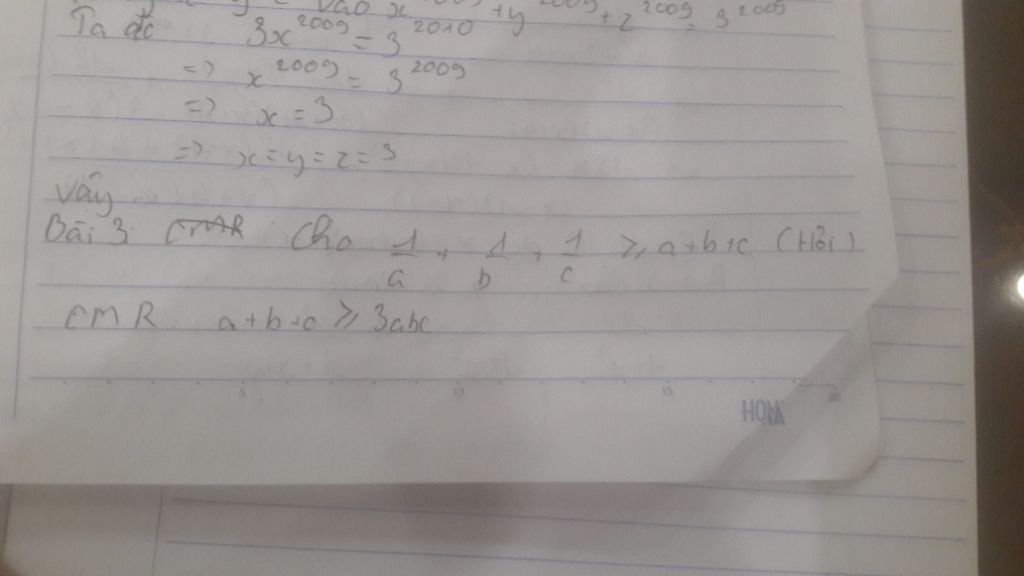 vào x + y 2009 + z 2009 = 3 2009
Ta đc 3x^2009 = 3^2010
=> x^2009 = 3^2009
=> x = 3
=> x = y = z = 3
Vậy
Bài 3 CMR Cho 1/a + 1/b + 1/c ≥ a+b+c (Hỏi)
CMR a+b+c ≥ 3abc
5 10 15 20